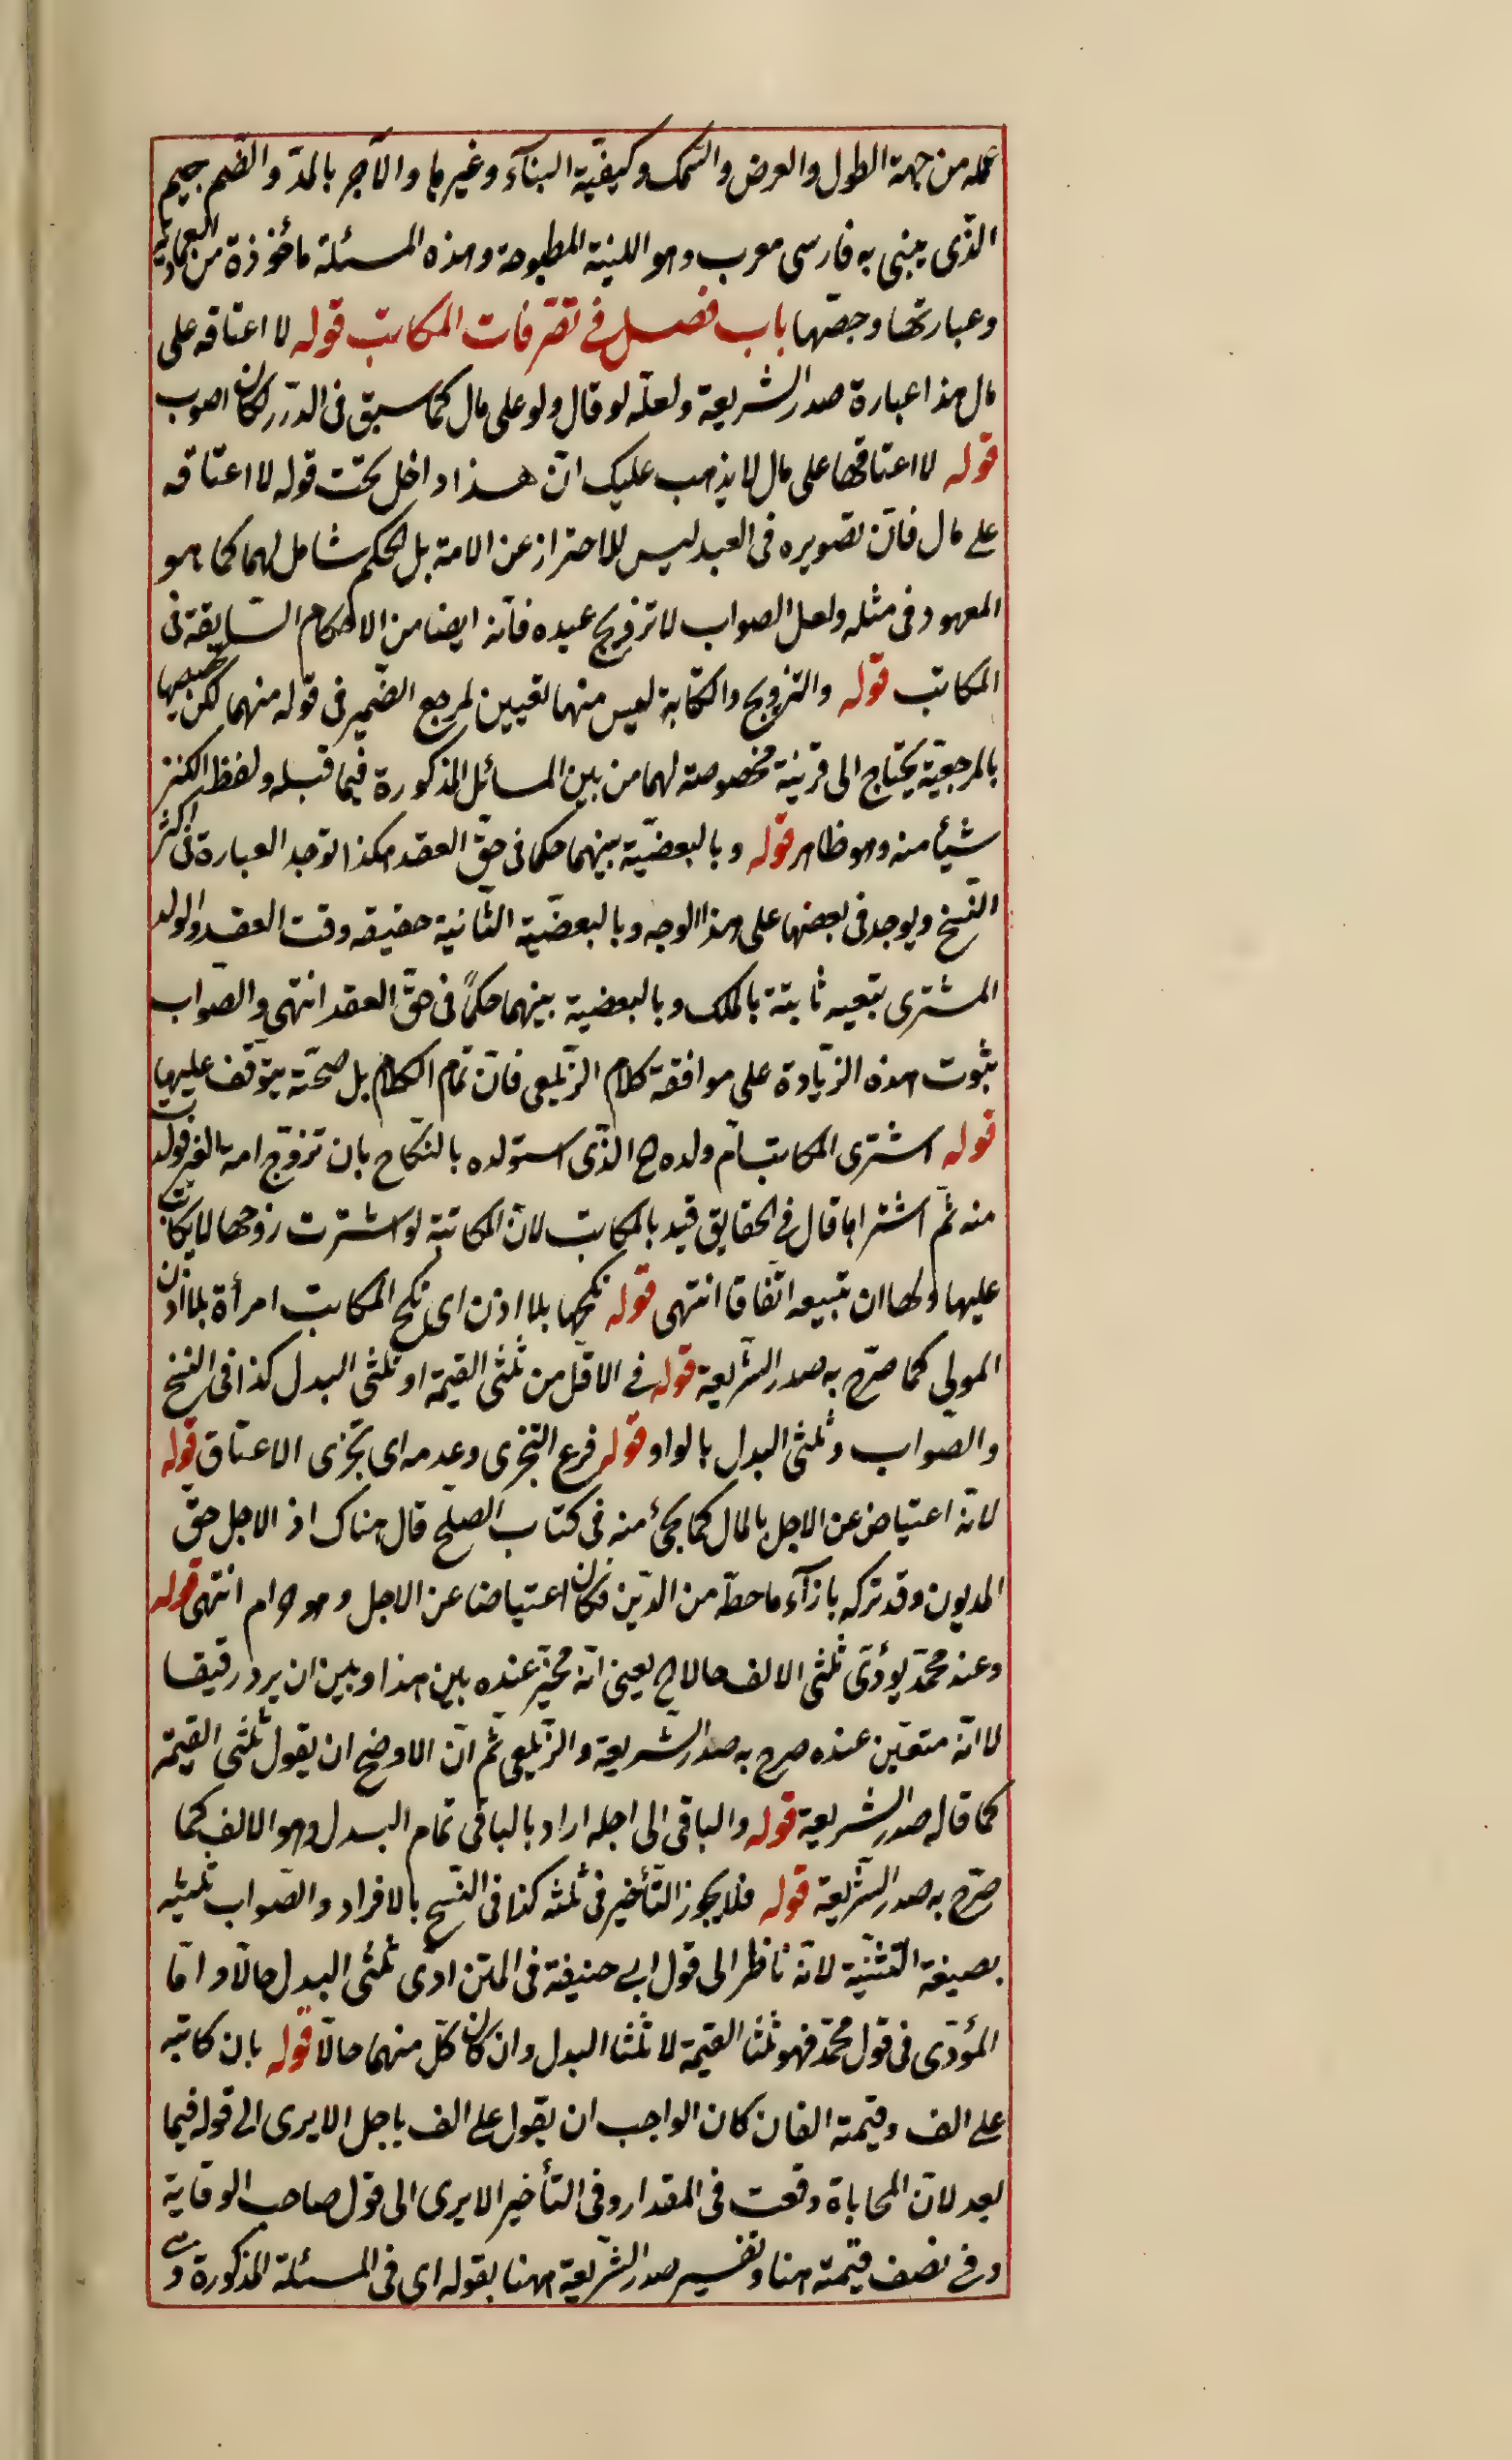 عمله من جهة الطول والعرض والسمك وكيفيّة البنآء وغيرها والآجر بالمدّ والضّم جيم
الذّى يبنى به فارسى معرب وهو اللبنة المطبوحة وهذه المسئلة مأخوذة من العمادية
وعبارتها وجصّها باب فصل فى تصّرفات المكاتب قوله لا اعتاقه على
مال هذا عبارة صدر الشريعة ولعلّه لو قال ولو على مال كما سبق فى الدّرر لكان اصوب
قوله لا اعتاقها على مال لا يذهب عليك انّ هذا داخل تحت قوله لا اعتاقه
على مال فانّ تصويره فى العبد ليس للاحتراز عن الامة بل الحكم شامل لهما كما هو
المعهود فى مثله ولعل الصواب لا تزويج عبده فانّه ايضا من الاحكام السّابقة فى
المكاتب قوله والتزويج والكتابة ليس منهما تعيين لمرجع الضّمير فى قوله منهما لكن تخصيصها
بالمرجعيّة يحتاج الى قرينة مخصوصة لهما من بين المسائل المذكورة فيما قبله ولفظ الكنز
شيأ منه وهو ظاهر قوله وبالبعضيّة بينهما حكما فى حقّ العقد هكذا توجد العبارة فى اكثر
النّسخ ويوجد فى بعضها على هذا الوجه وبالبعضيّة الثّانية حقيقه وقت العقد والولد
المشترى تبعيه ثابتة بالملك وبالبعضية بينهما حكمًا فى حقّ العقد انتهى والصّواب
ثبوت هذه الزّيادة على موافقة كلام الزّيلعى فانّ تمام الكلام بل صحّته يتوّقف عليها
قوله اشترى المكاتب امّ ولده ح الذّى استولده بالنّكاح بان تزوّج امة الغير فولدت
منه ثمّ اشتراها قال فى الحقايق قيد بالمكاتب لانّ المكاتبة لو اشترت زوجها لا يكاتب
عليها ولها ان تبيعه اتّفاقا انتهى قوله نكحها بلا اذن اى نكح المكاتب امرأة بلا اذن
المولى كما صرّح به صدر الشّريعة قوله فى الاقلّ من ثلثى القيمة او ثلثى البدل كذا فى النسخ
والصّواب وثلثى البدل بالواو قوله فرع التجزى وعدمه اى تجزى الاعتاق قوله
لانّه اعتياض عن الاجل بالمال كما يجئ منه فى كتاب الصلح قال هناك اذ الاجل حقّ
المديون وقد تركه بازآء ما حطّه من الدّين فكان اعتياضا عن الاجل وهو حرام انتهى قوله
وعند محمّد يؤدّى ثلثى الالف حالا ح يعنى انّه مخيّر عنده بين هذا وبين ان يرد رقيقا
لا انّه متعيّن عنده صرح به صدر الشّريعة والزّيلعى ثمّ انّ الاوضح ان يقول ثلثى القيمة
كما قاله صدر الشريعة قوله والباقى الى اجله اراد بالباقى تمام البدل وهو الالف كما
صرّح به صدر الشّريعة قوله فلا يجوز التأخير فى ثلثه كذا فى النّسخ بالافراد والصّواب ثلثيه
بصيغة التّثنّية لانّه ناظر الى قول ابى حنيفة فى المتن ادّى ثلثى البدل حالّا وامّا
المؤدّى فى قول محمّد فهو ثلثا القيمة لا ثلثا البدل وان كان كلّ منهما حالّا قوله بان كاتبه
على الف وقيمته الفان كان الواجب ان يقول على الف باجل الا يرى الى قوله فيما
بعد لانّ المحاباة وقعت فى المقدار وفى التأخير الا يرى الى قول صاحب الوقاية
وفى نصف قيمته هنا وتفسير صدر الشّريعة ههنا بقوله اى فى المسئلة المذكورة